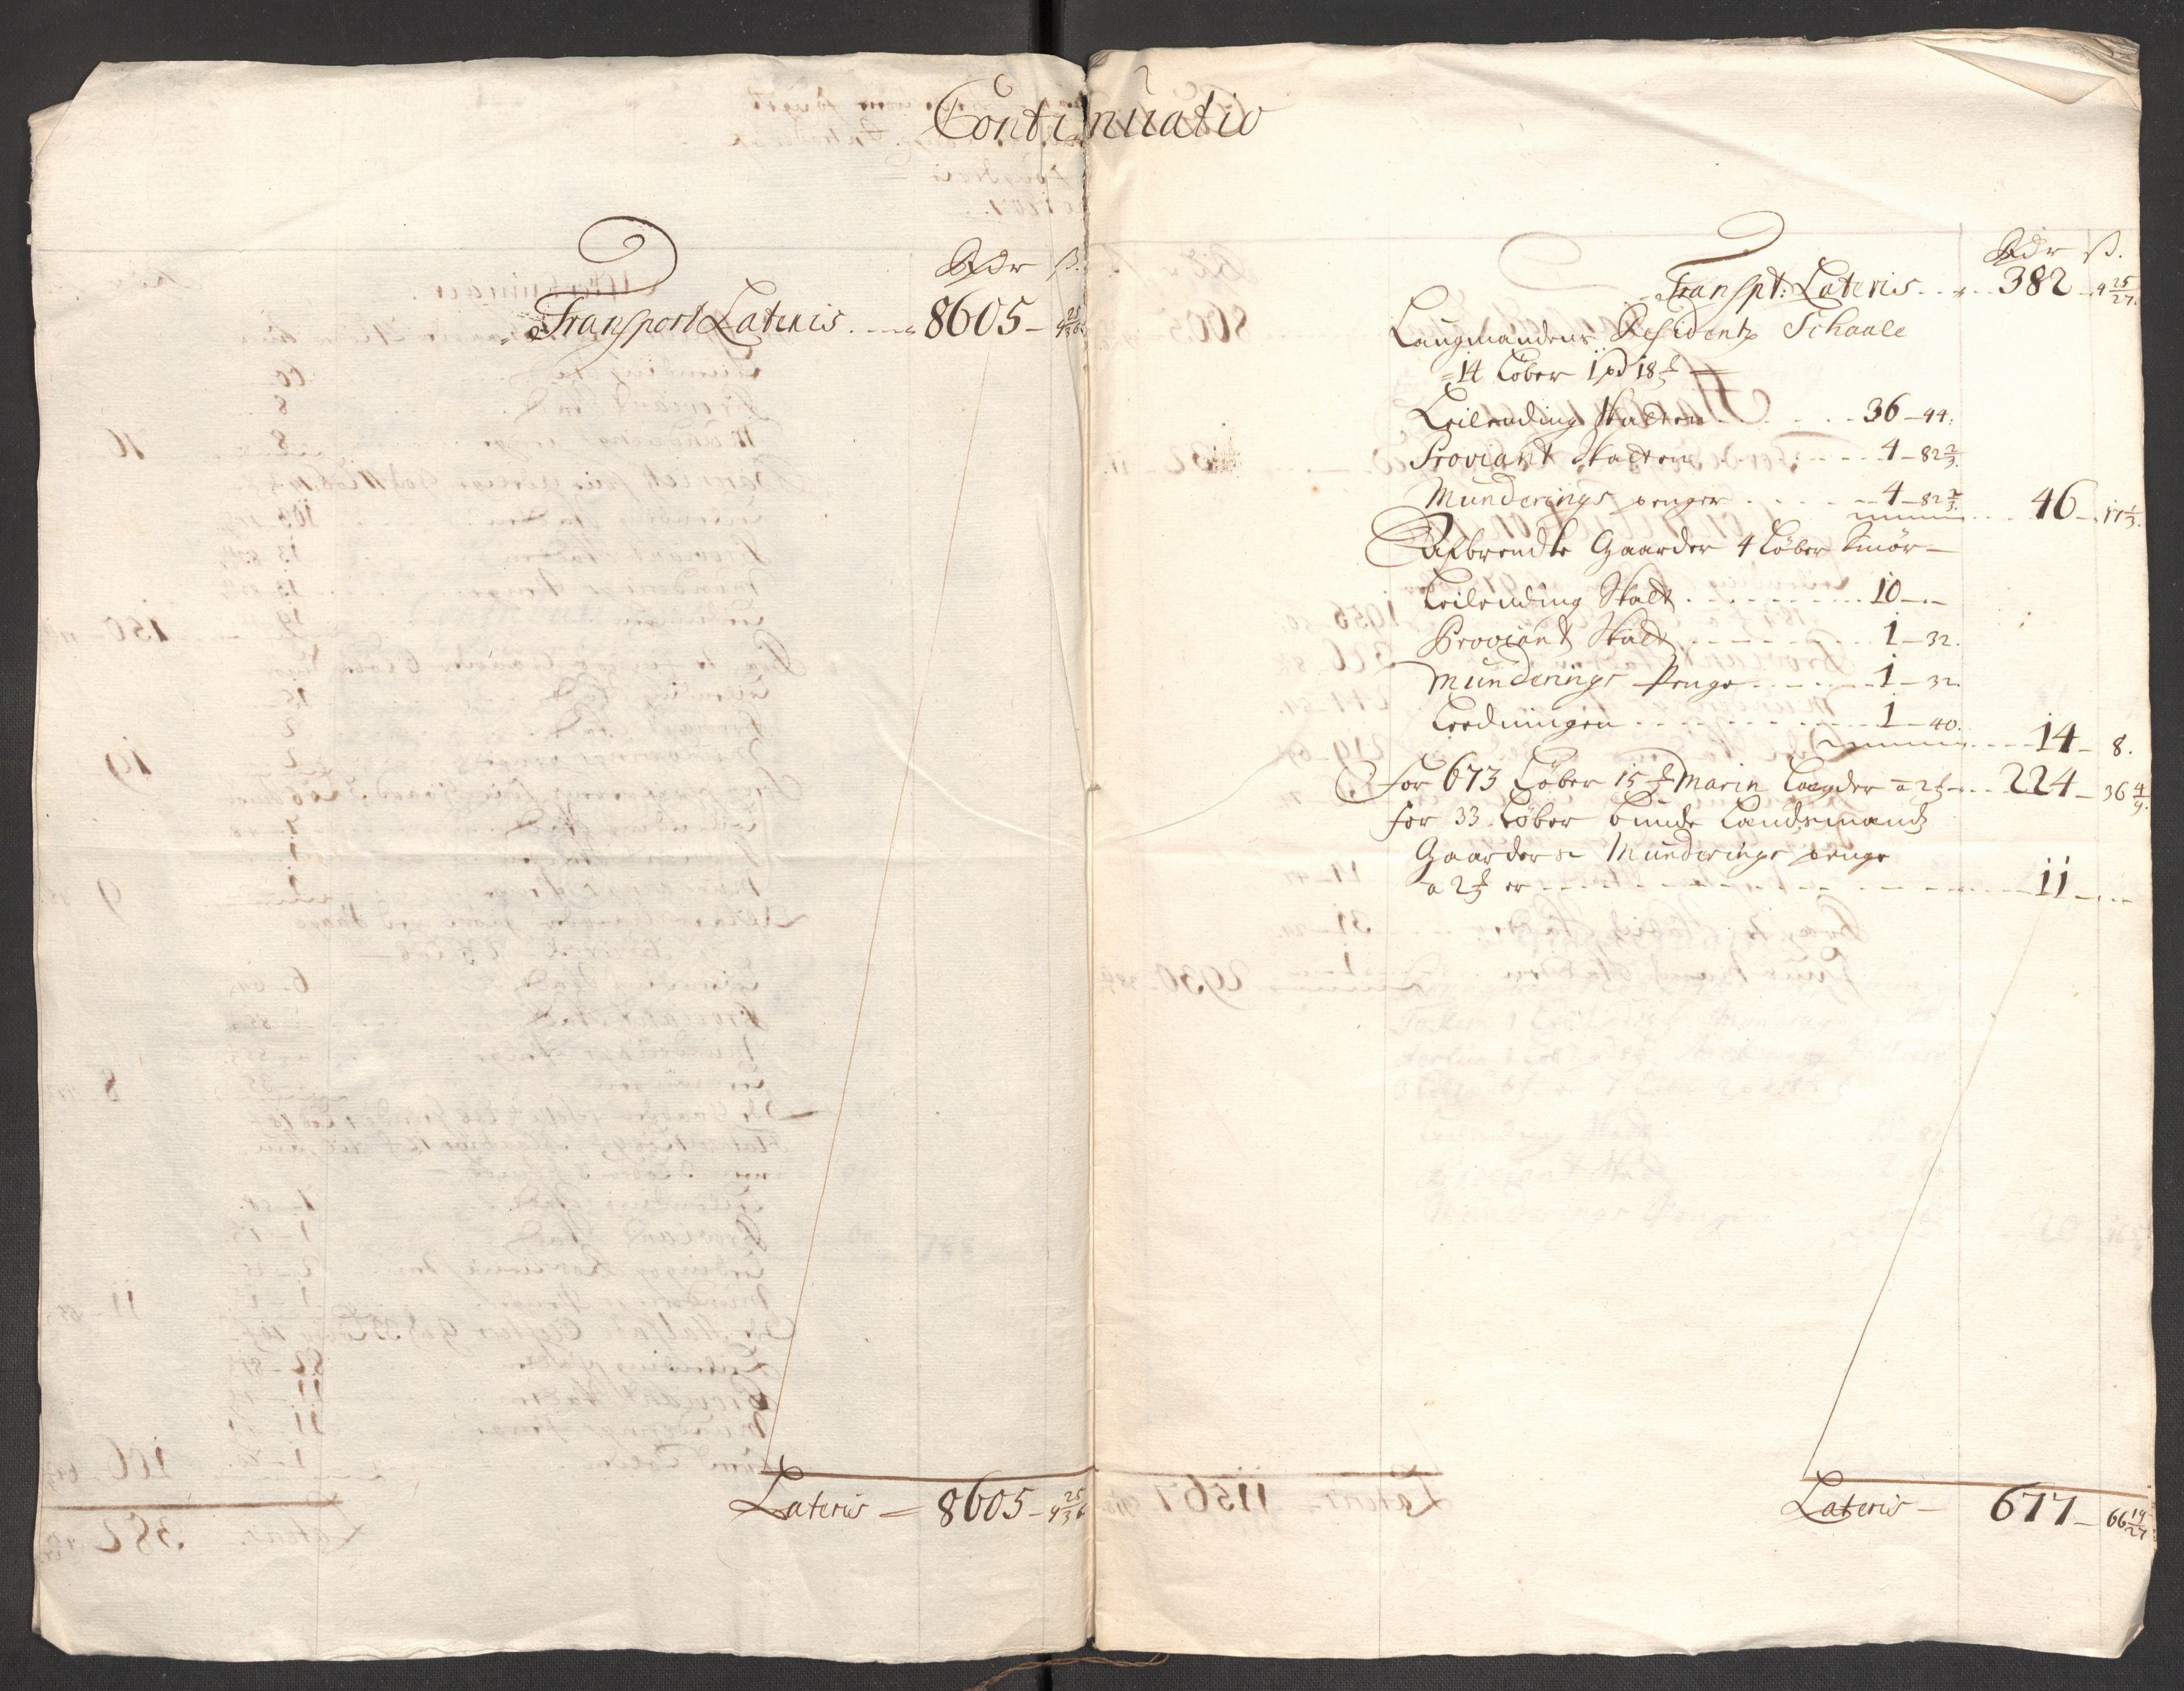 Continuatio
Rdr ß.
Transport Lateris 8605 – 9 25/36
Lateris – 8605 – 9 25/36
Rdr ß.
Transpt: Lateris 382 – 4 25/27
Laugmandens Residentz Schaale
14 Løber 1 pd 18
Leilending Skatten 36 – 44
Proviant Skatten 4 – 82 2/3
Munderings penger 4 – 82 2/3 46 – 17 1/3
Afbrendte Gaarder 4 Løber Smør
Leilending Skatt 10 –
Proviant Skatt 1 – 32
Munderings Penge 1 – 32
Leedningen 1 – 40 14 – 8
For 673 Løber 15 Marin Laugder a 2 224 – 36 4/9
for 33 Løber Landsmands
Gaarder Munderings penge
a 2 er 11 –
Lateris – 677 – 66 19/27